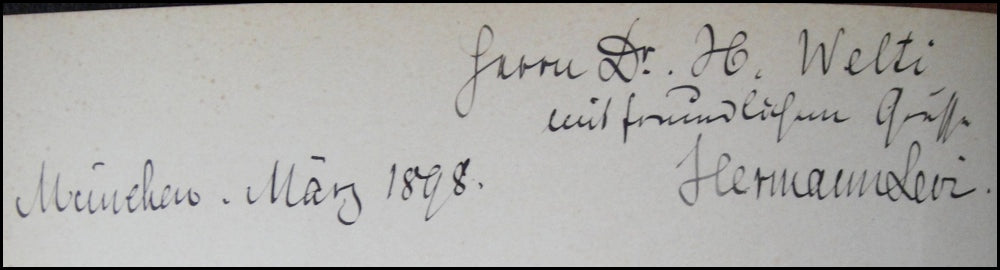 Herrn Dr. H. Welti
mit freundlichem Grüsse
München. März 1898.
Hermann Levi.